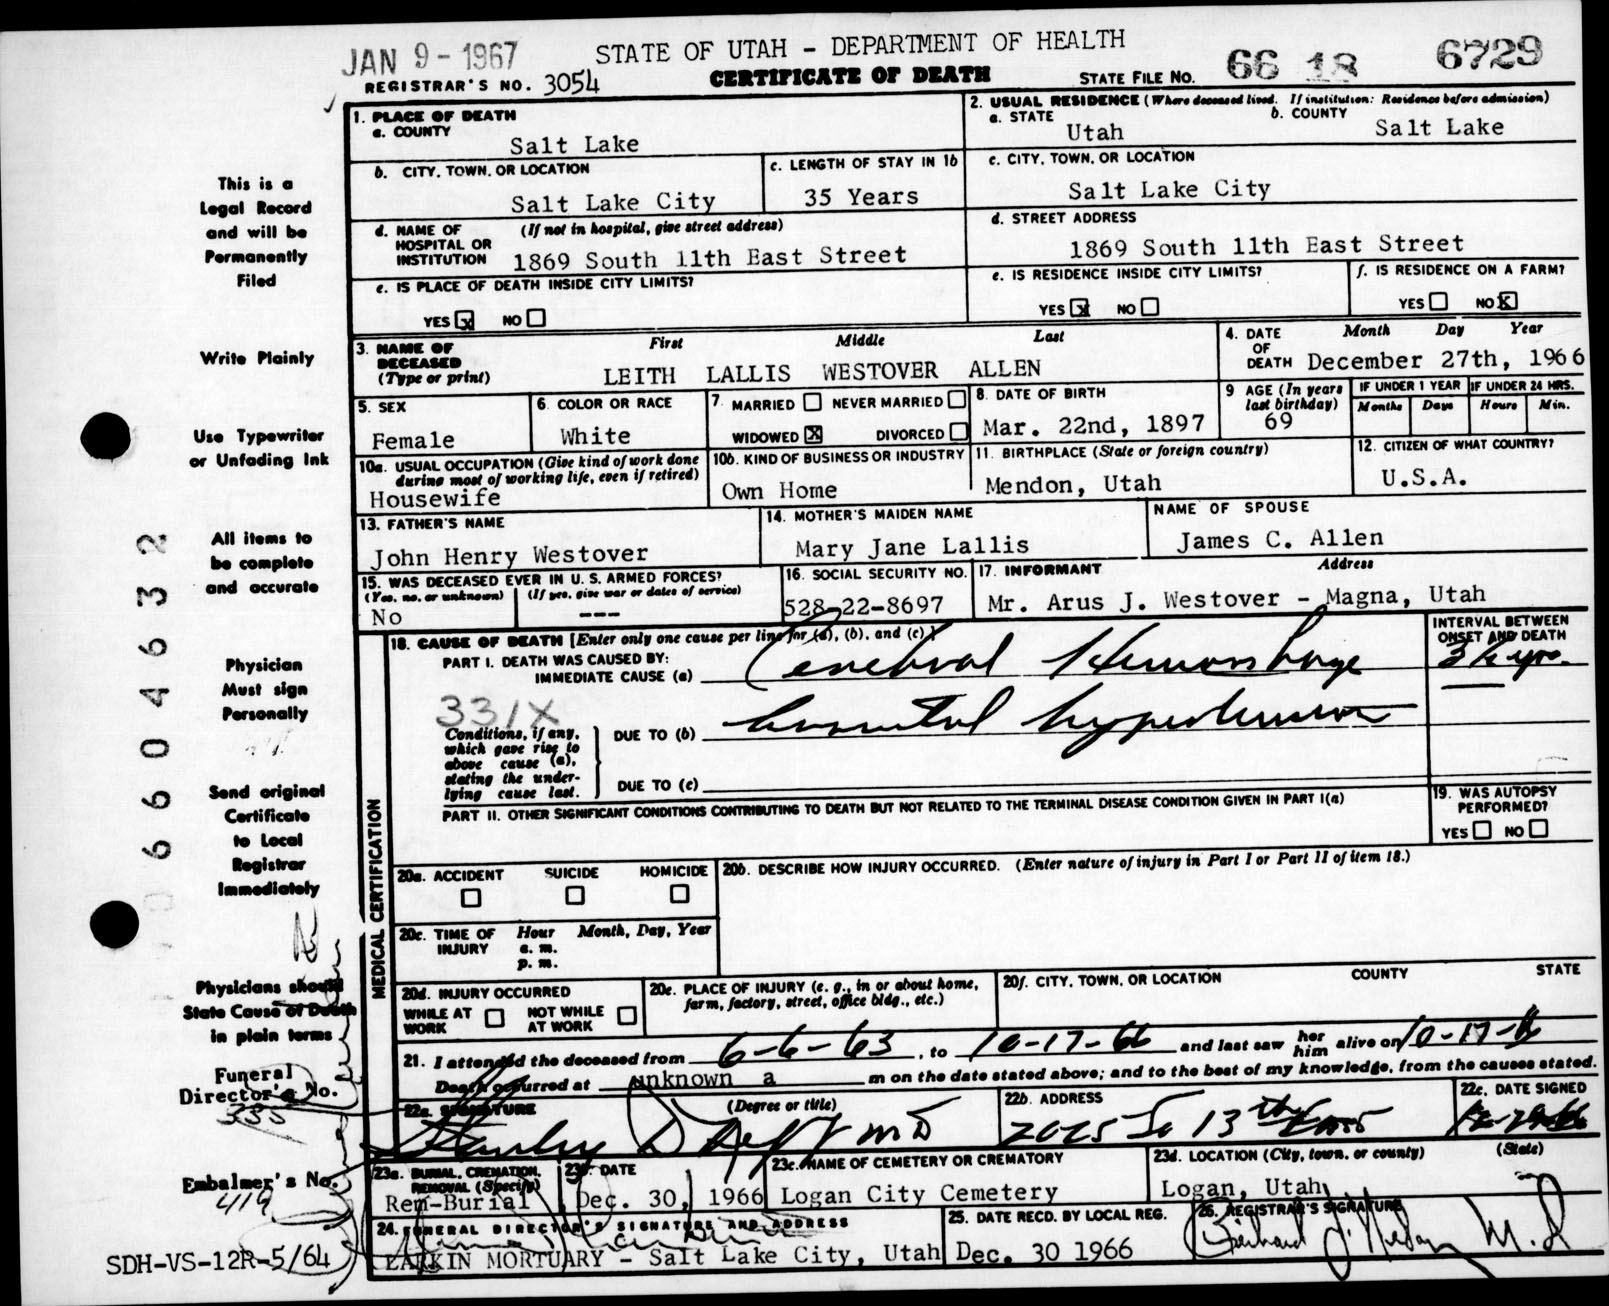 JAN 9 - 1967
STATE OF UTAH - DEPARTMENT OF HEALTH
CERTIFICATE OF DEATH
REGISTRAR'S NO. 3054
STATE FILE NO. 66 18 6729
1. PLACE OF DEATH
a. COUNTY
Salt Lake
2. USUAL RESIDENCE (Where deceased lived. If institution: Residence before admission)
a. STATE
Utah
b. COUNTY
Salt Lake
b. CITY, TOWN, OR LOCATION
Salt Lake City
c. LENGTH OF STAY IN 1b
35 Years
c. CITY, TOWN, OR LOCATION
Salt Lake City
d. NAME OF HOSPITAL OR INSTITUTION
(If not in hospital, give street address)
1869 South 11th East Street
d. STREET ADDRESS
1869 South 11th East Street
e. IS PLACE OF DEATH INSIDE CITY LIMITS?
YES X NO
e. IS RESIDENCE INSIDE CITY LIMITS?
YES X NO
f. IS RESIDENCE ON A FARM?
YES NO X
3. NAME OF DECEASED
(Type or print)
First Middle Last
LEITH LALLIS WESTOVER ALLEN
4. DATE OF DEATH
Month Day Year
December 27th, 1966
5. SEX
Female
6. COLOR OR RACE
White
7. MARRIED NEVER MARRIED
WIDOWED X DIVORCED
8. DATE OF BIRTH
Mar. 22nd, 1897
9 AGE (In years last birthday)
69
IF UNDER 1 YEAR
Months Days
IF UNDER 24 HRS.
Hours Min.
10a. USUAL OCCUPATION (Give kind of work done during most of working life, even if retired)
Housewife
10b. KIND OF BUSINESS OR INDUSTRY
Own Home
11. BIRTHPLACE (State or foreign country)
Mendon, Utah
12. CITIZEN OF WHAT COUNTRY?
U.S.A.
13. FATHER'S NAME
John Henry Westover
14. MOTHER'S MAIDEN NAME
Mary Jane Lallis
NAME OF SPOUSE
James C. Allen
15. WAS DECEASED EVER IN U. S. ARMED FORCES?
(Yes, no, or unknown) (If yes, give war or dates of service)
No ---
16. SOCIAL SECURITY NO.
528-22-8697
17. INFORMANT Address
Mr. Arus J. Westover - Magna, Utah
MEDICAL CERTIFICATION
18. CAUSE OF DEATH [Enter only one cause per line for (a), (b), and (c)]
PART I. DEATH WAS CAUSED BY:
IMMEDIATE CAUSE (a) Cerebral Hemorrhage
INTERVAL BETWEEN ONSET AND DEATH
3 1/2 yrs.
331X
Conditions, if any, which gave rise to above cause (a), stating the underlying cause last.
DUE TO (b) hypertension
DUE TO (c)
PART II. OTHER SIGNIFICANT CONDITIONS CONTRIBUTING TO DEATH BUT NOT RELATED TO THE TERMINAL DISEASE CONDITION GIVEN IN PART I(a)
19. WAS AUTOPSY PERFORMED?
YES NO
20a. ACCIDENT SUICIDE HOMICIDE
20b. DESCRIBE HOW INJURY OCCURRED. (Enter nature of injury in Part I or Part II of item 18.)
20c. TIME OF INJURY
Hour Month, Day, Year
a. m.
p. m.
20d. INJURY OCCURRED
WHILE AT WORK NOT WHILE AT WORK
20e. PLACE OF INJURY (e. g., in or about home, farm, factory, street, office bldg., etc.)
20f. CITY, TOWN, OR LOCATION COUNTY STATE
21. I attended the deceased from 6-6-63, to 10-17-66 and last saw her him alive on 10-17-66
Death occurred at unknown a m on the date stated above; and to the best of my knowledge, from the causes stated.
22a. SIGNATURE (Degree or title)
Stanley D MD
22b. ADDRESS
2025 So 13th East
22c. DATE SIGNED
23a. BURIAL, CREMATION, REMOVAL (Specify)
Rem-Burial
23b. DATE
Dec. 30, 1966
23c. NAME OF CEMETERY OR CREMATORY
Logan City Cemetery
23d. LOCATION (City, town, or county) (State)
Logan, Utah
24. FUNERAL DIRECTOR'S SIGNATURE AND ADDRESS
LARKIN MORTUARY - Salt Lake City, Utah
25. DATE RECD. BY LOCAL REG.
Dec. 30 1966
26. REGISTRAR'S SIGNATURE
M.D
This is a
Legal Record
and will be
Permanently
Filed
Write Plainly
Use Typewriter
or Unfading Ink
All items to
be complete
and accurate
Physician
Must sign
Personally
Send original
Certificate
to Local
Registrar
Immediately
Physicians should
State Cause of Death
in plain terms
Funeral
Director's No.
335
Embalmer's No.
419
SDH-VS-12R-5/64
6604632